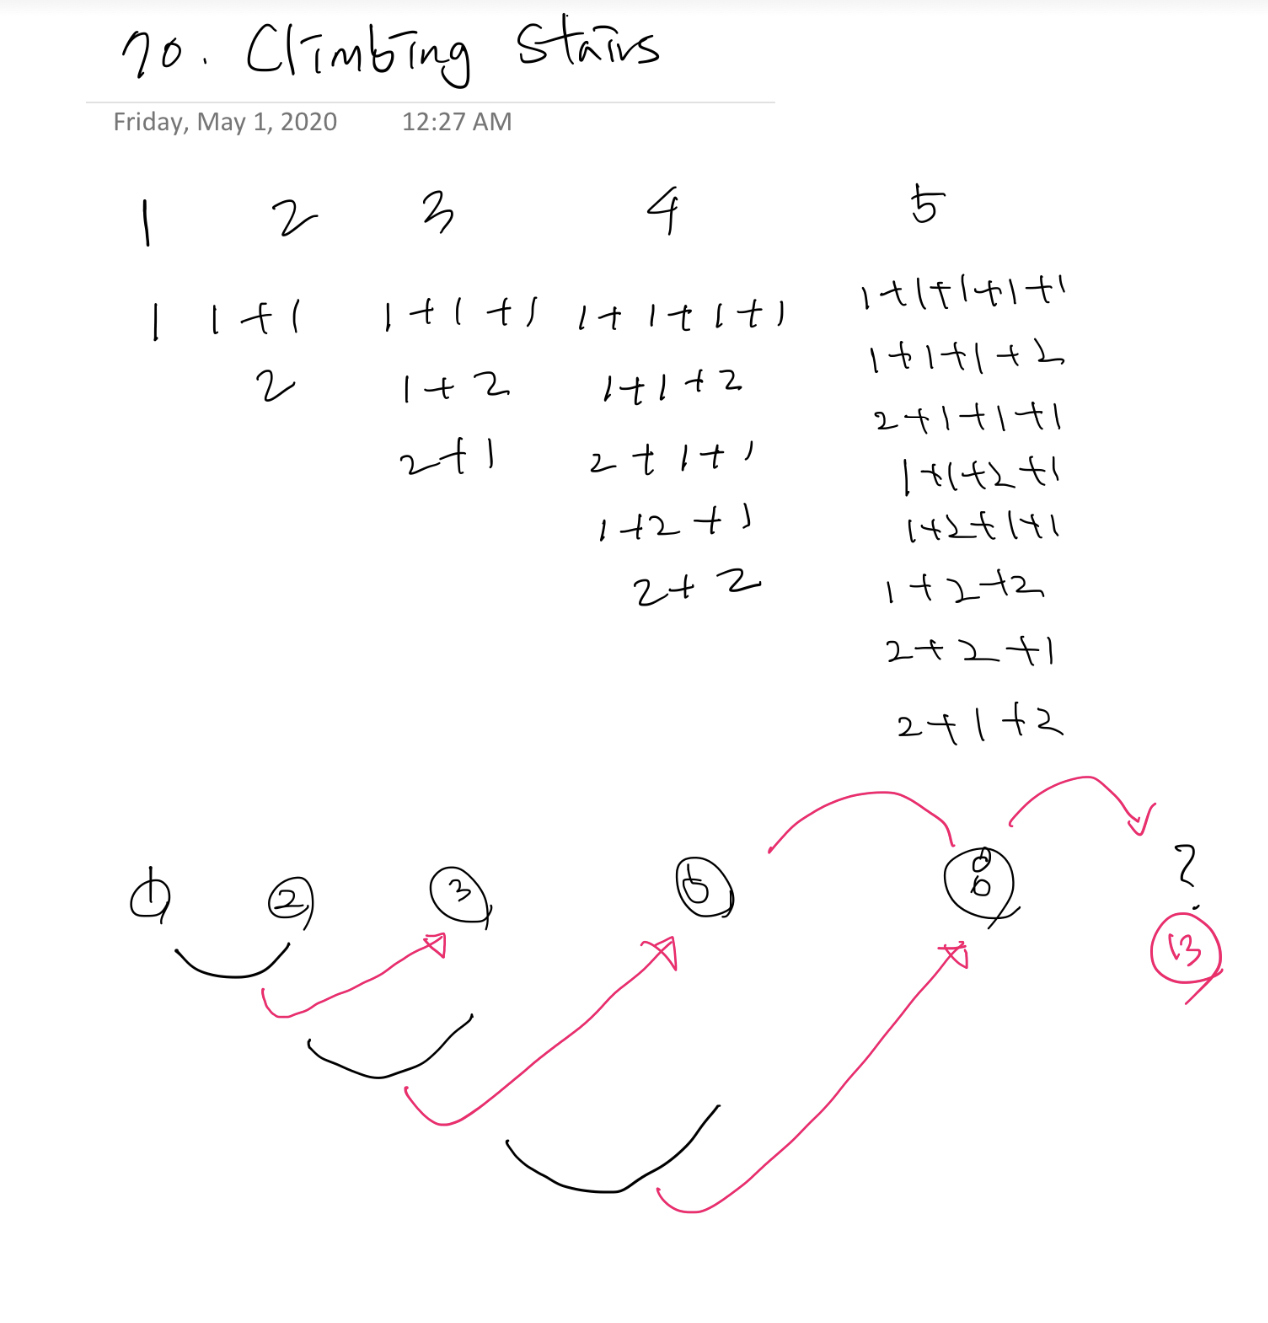 70. Climbing Stairs
Friday, May 1, 2020 12:27 AM
1 2 3 4 5
1 1+1 1+1+1 1+1+1+1 1+1+1+1+1
2 1+2 1+1+2 1+1+1+2
2+1 2+1+1 2+1+1+1
1+2+1 1+1+2+1
2+2 1+2+1+1
1+2+2
2+2+1
2+1+2
1 2 3 5 8 ?
13